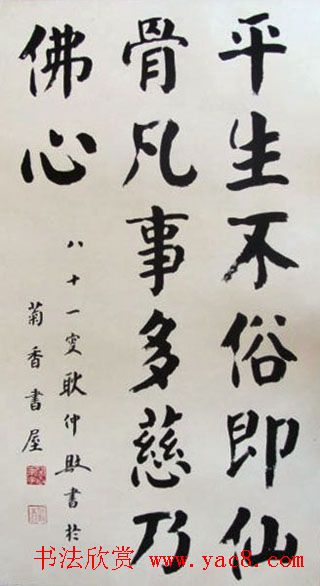 平生不俗即仙
骨凡事多慈乃
佛心
八十一叟耿仲敭書於
菊香書屋
书法欣赏 www.yac8.com